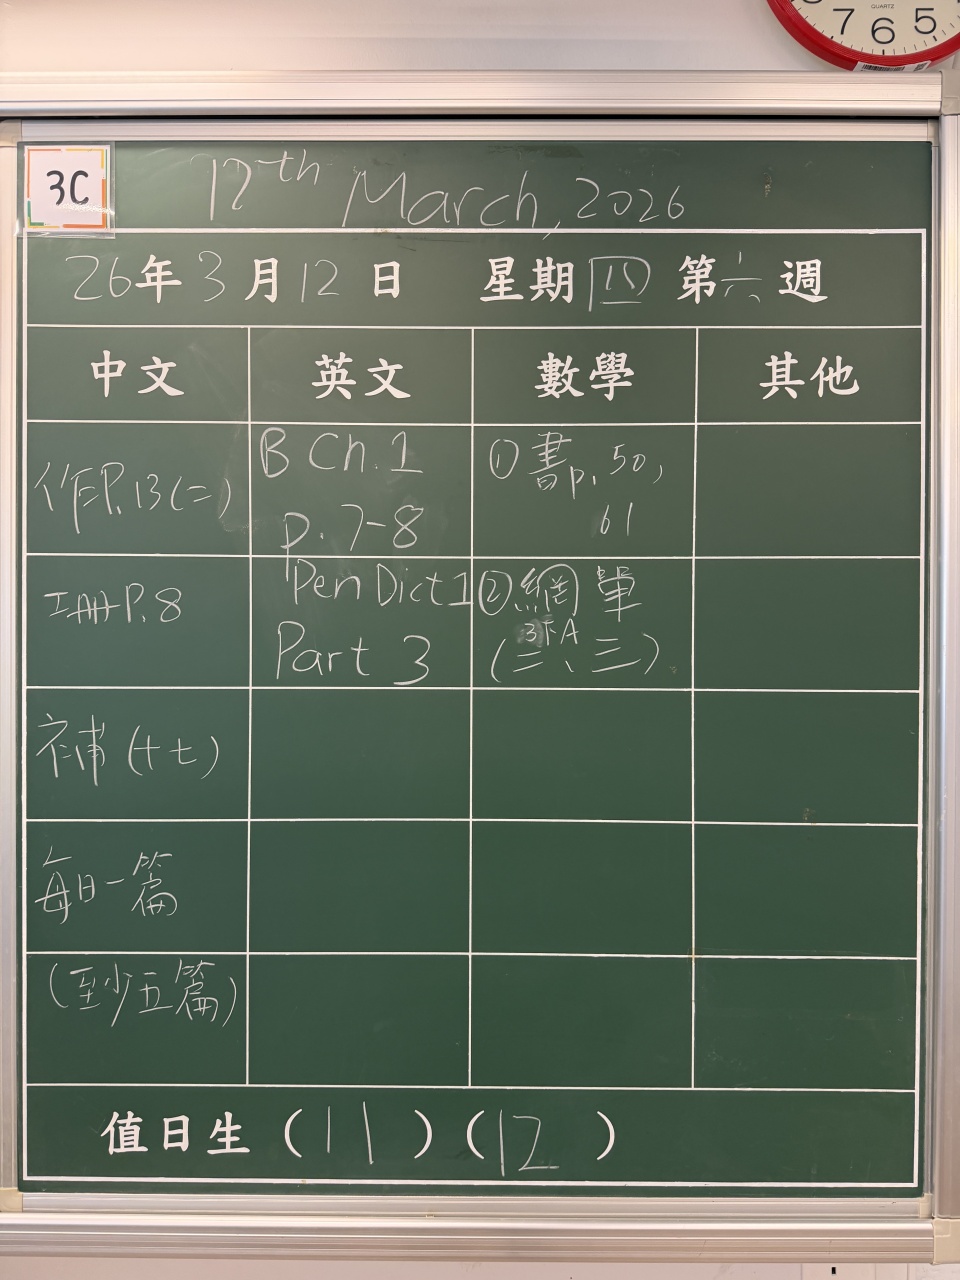 QUARTZ
7 6 5
3C
12th March, 2026
26年3月12日 星期四 第六週
中文 英文 數學 其他
作P.13(二)
B Ch.1
p.7-8
①書p.50,
61
工冊P.8
Pen Dict 1
Part 3
②網單
3下A
(二、三)
補(十七)
每日一篇
(至少五篇)
值日生(11)(12)